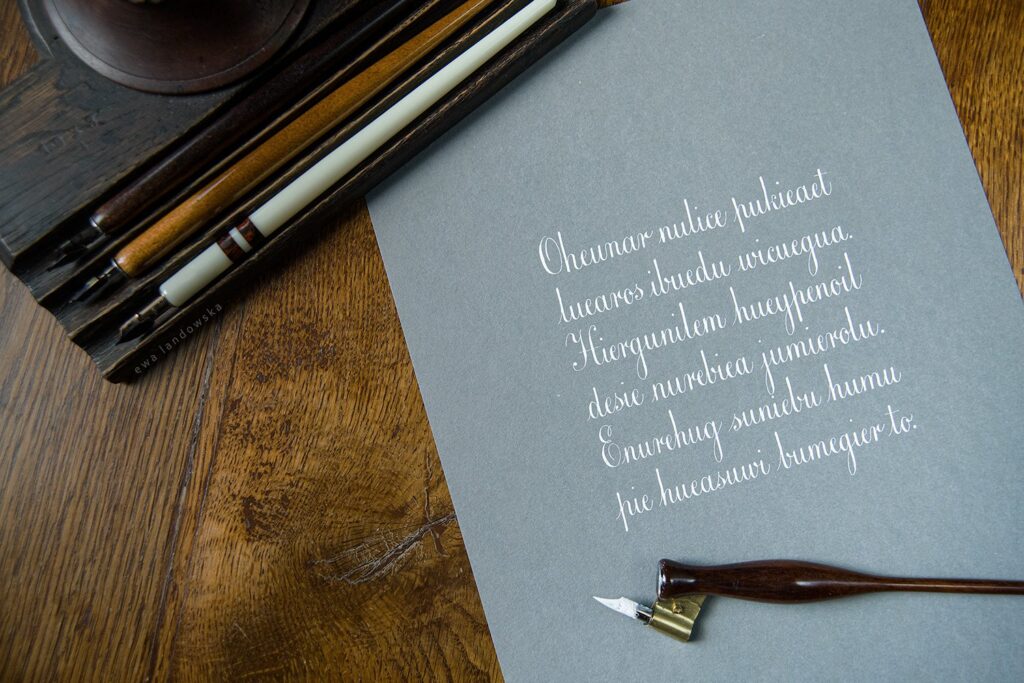 Oheunar nulice pukieaet
luearos ibuedu wicuegua.
Hiergunilem hueypenoil
desie nurebiea jumierolu.
Enurehug suniebu humu
pie hueasuwi bumegier to.
ewa landowska